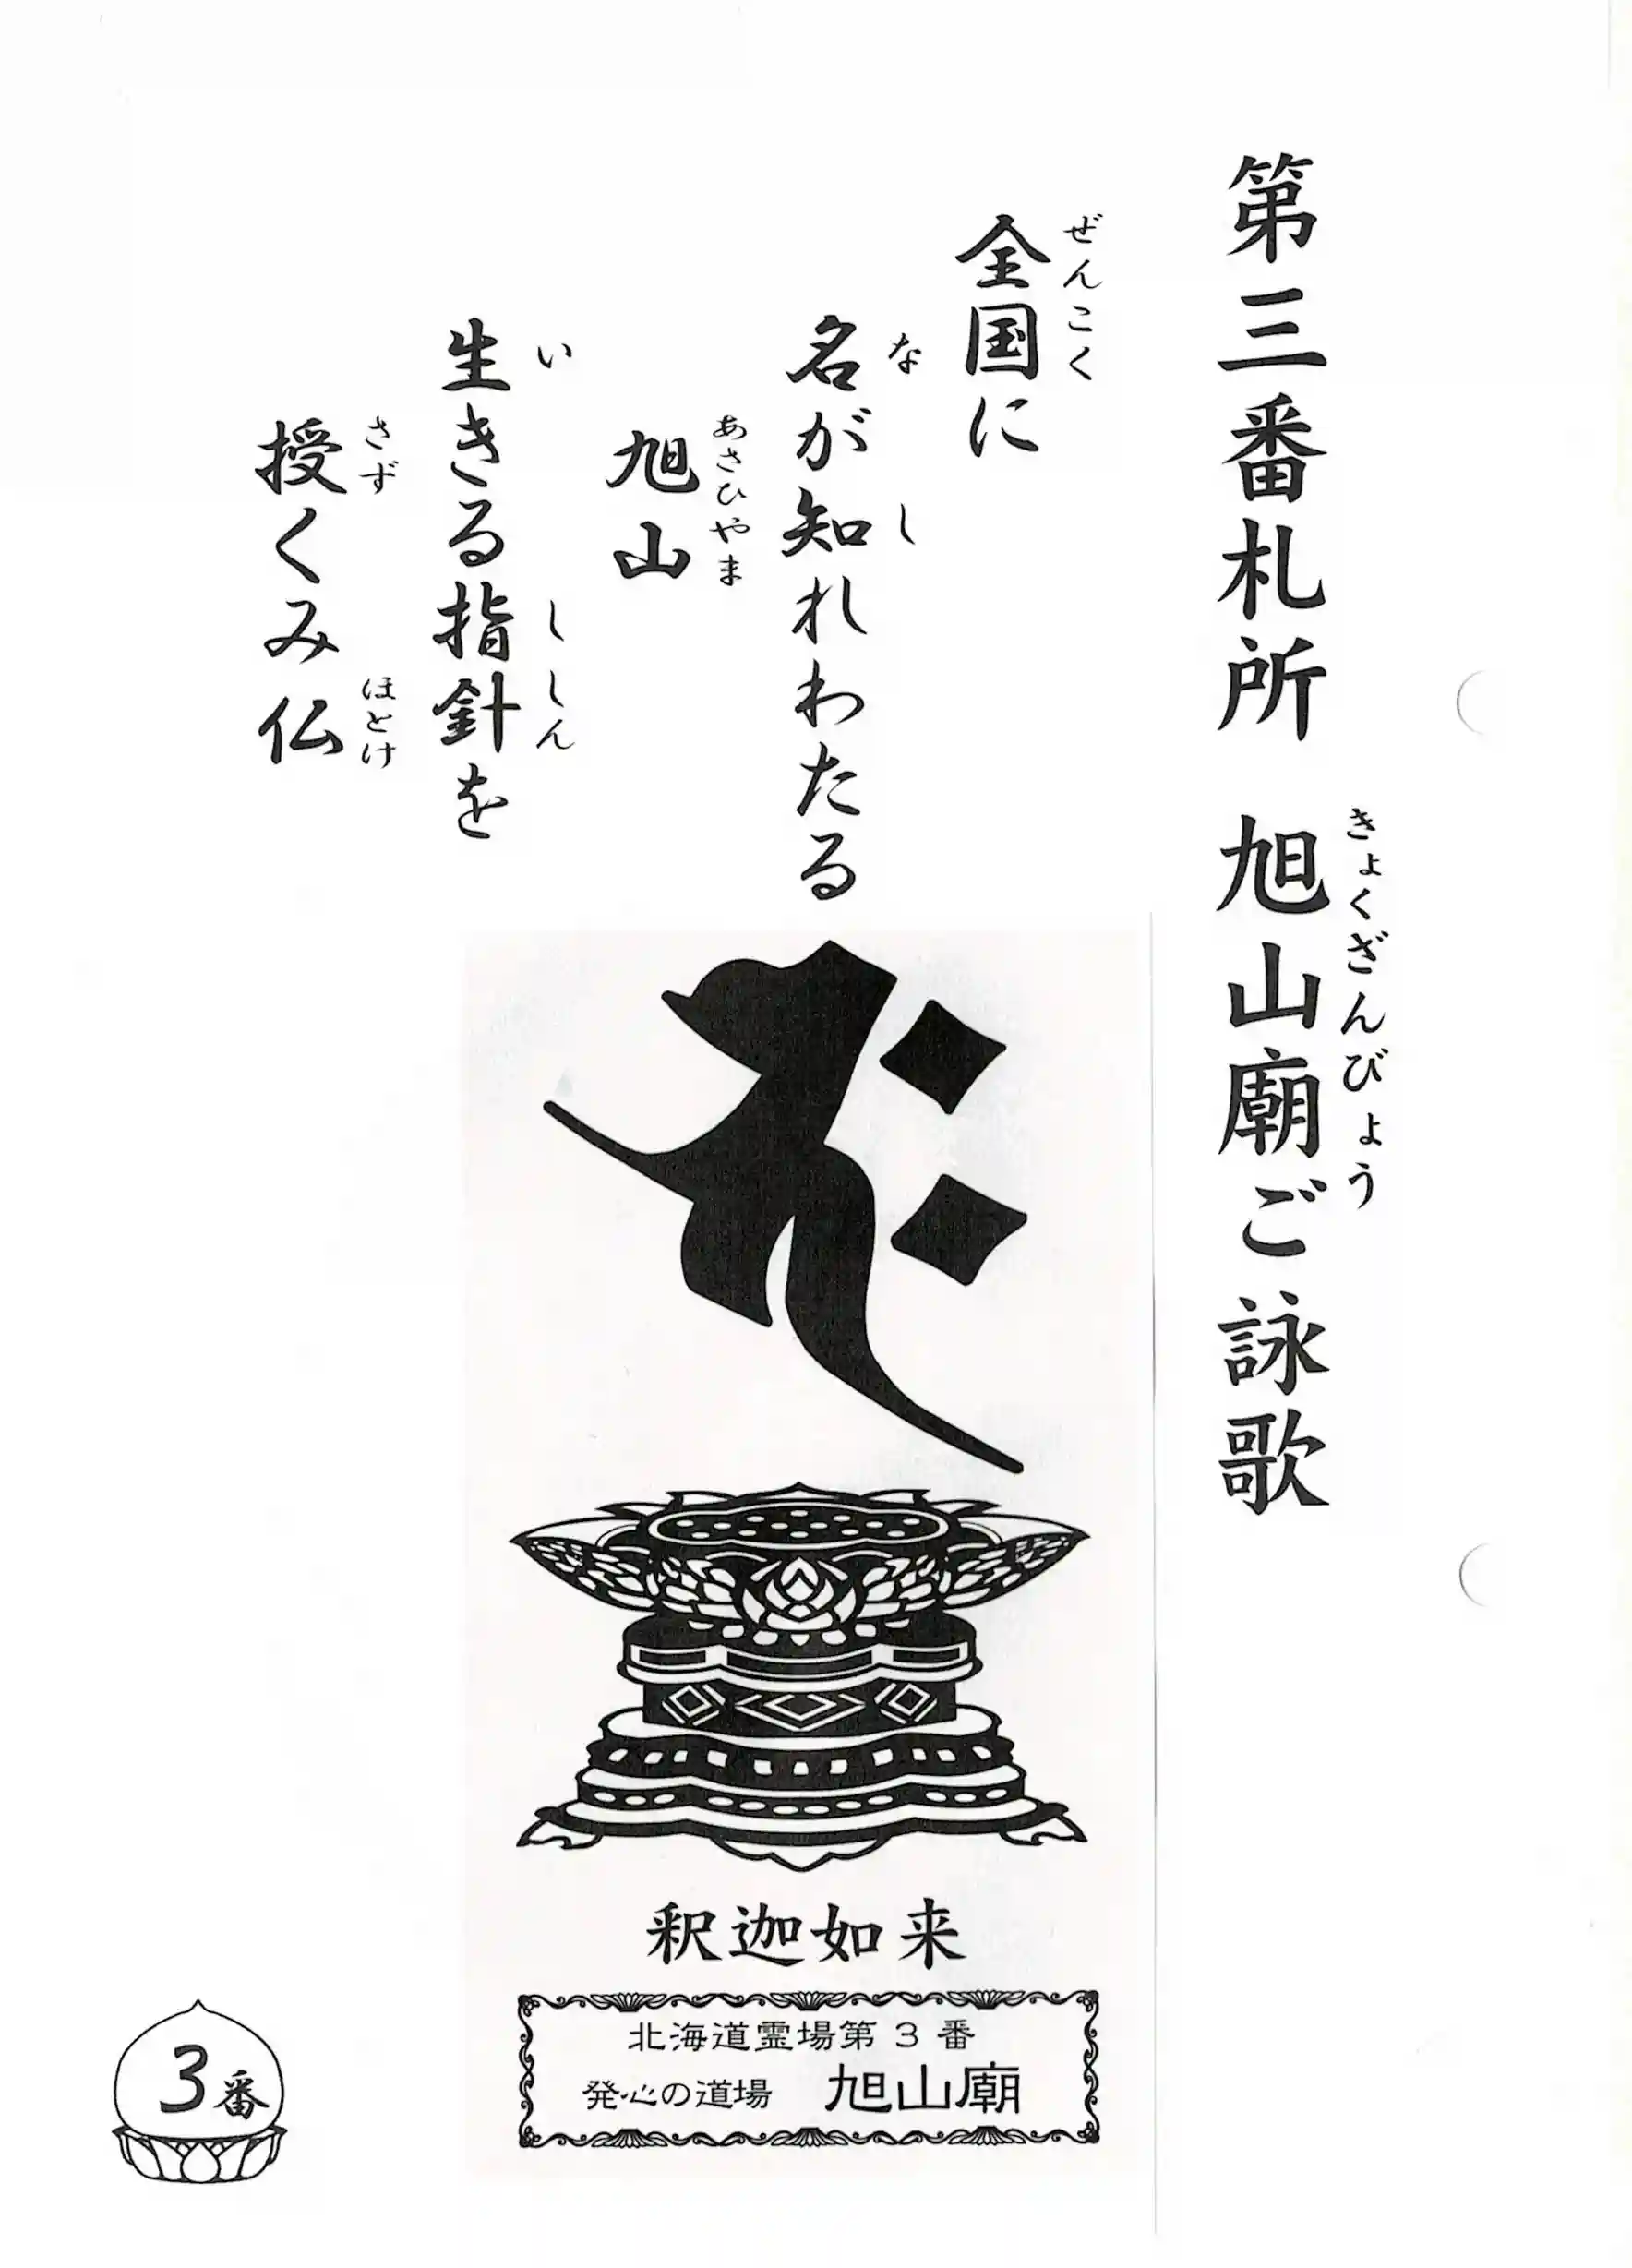 第三番札所 旭山廟ご詠歌
きょくざんびょう
全国に
ぜんこく
名が知れわたる
な し
旭山
あさひやま
生きる指針を
い ししん
授くみ仏
さず ほとけ
釈迦如来
北海道霊場第3番
発心の道場 旭山廟
3番